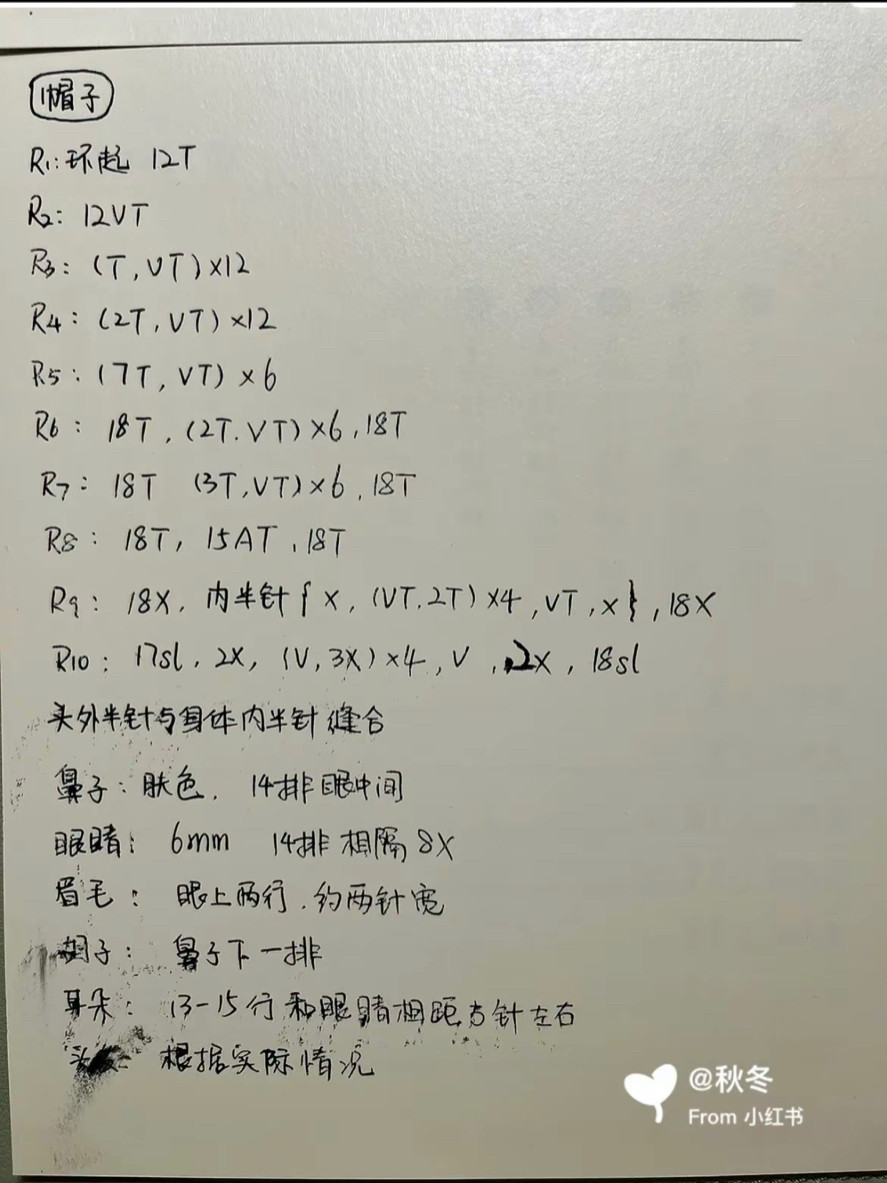 帽子
R1:环起 12T
R2: 12VT
R3: (T,VT)×12
R4: (2T,VT)×12
R5: (7T,VT)×6
R6: 18T,(2T.VT)×6,18T
R7: 18T (3T,VT)×6,18T
R8: 18T,15AT,18T
R9: 18X,内半针{X,(VT.2T)×4,VT,X},18X
R10: 17sl,2X,(V,3X)×4,V,2X,18sl
头外半针与身体内半针缝合
鼻子:肤色,14排眼中间
眼睛: 6mm 14排相隔8X
眉毛: 眼上两行.约两针宽
胡子: 鼻子下一排
耳朵: 13-15行和眼睛相距 针左右
根据实际情况
@秋冬
From 小红书